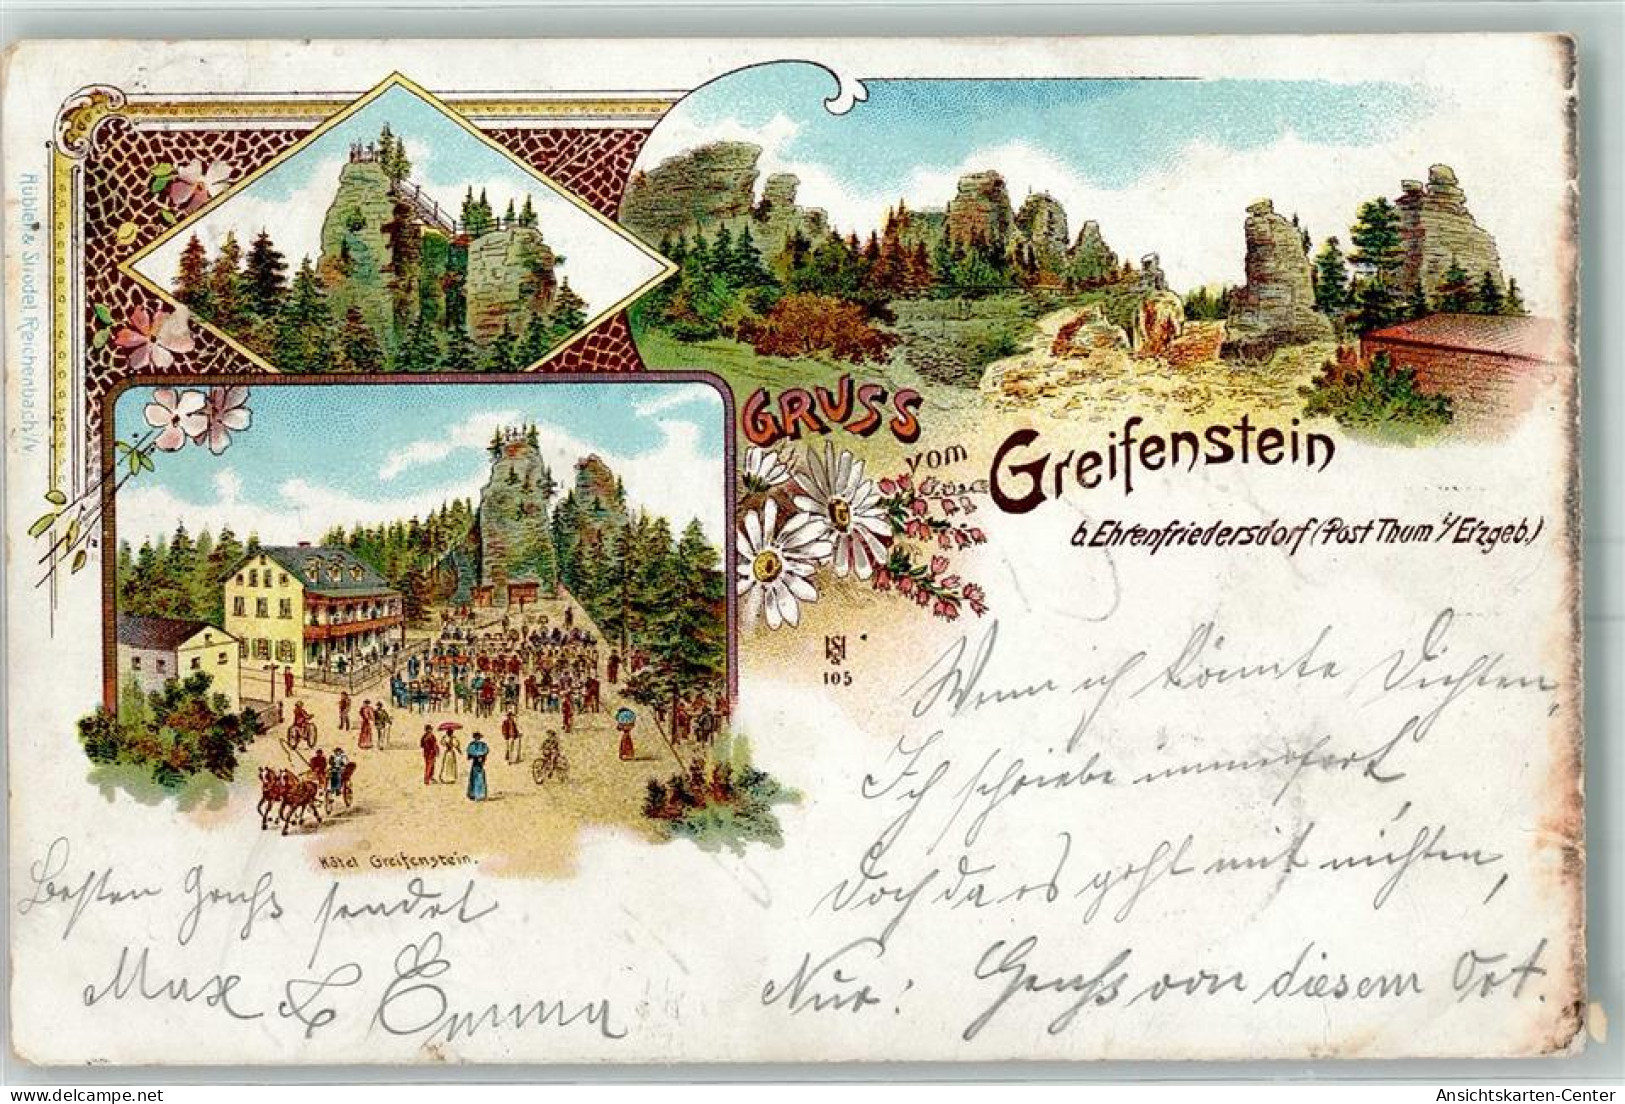 GRUSS
vom
Greifenstein
b. Ehrenfriedersdorf (Post Thum i/Erzgeb.)
HS
105
Hôtel Greifenstein.
Wenn ich könnte Dichten,
Ich schriebe immerfort,
Doch da es geht mit nichten,
Nur: Gruß von diesem Ort.
Besten Gruß sendet
Max & Emma
Rübler & Strödel, Reichenbach i/V.
AnsichtsKarten-Center